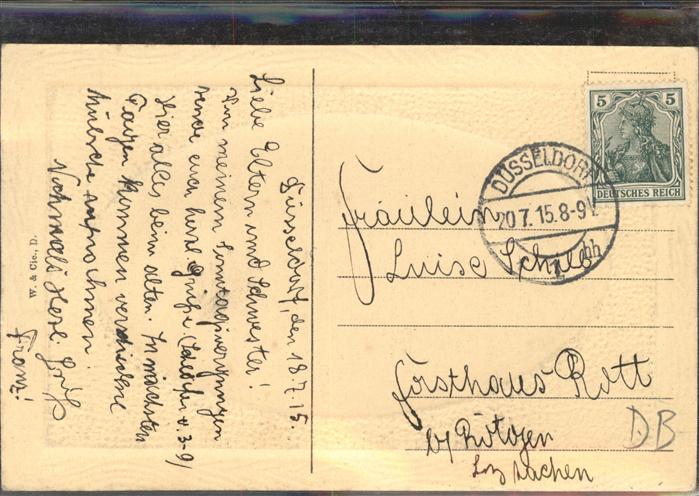 Düsseldorf, den 18.7.15.
Liebe Eltern und Schwester!
Von meinem Sonntagsvergnügen
sende euch herzl. Grüße (Schlafen v. 3-9)
Hier alles beim alten. In nächsten
Tagen kommen verschiedene
hübsche Aufnahmen.
Nochmals Herzl. Grüße
Franz.
W. & Cie., D.
5 5
DEUTSCHES REICH
DÜSSELDORF
20.7.15.8-9V.
1 hh
Fräulein
Luise
Forsthaus Rott
by Rötgen
Bz Aachen
DB